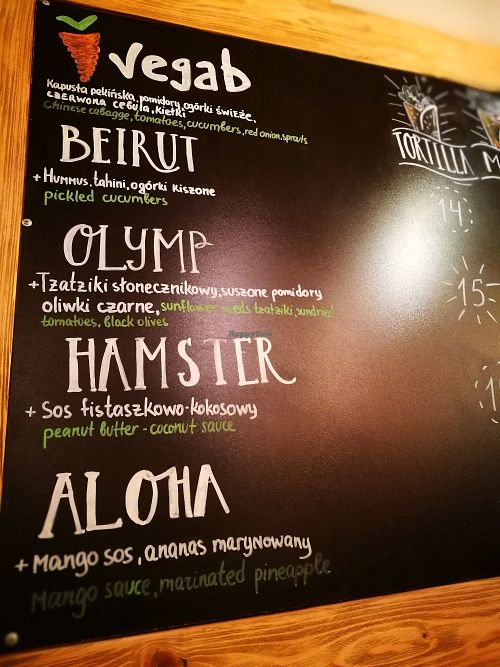 vegab
Kapusta pekińska, pomidory, ogórki świeże,
czerwona cebula, kiełki
Chinese cabagge, tomatoes, cucumbers, red onion, sprouts
BEIRUT
+ Hummus, tahini, ogórki kiszone
pickled cucumbers
OLYMP
+ Tzatziki słonecznikowy, suszone pomidory
oliwki czarne, sunflower seeds tzatziki, sundried
tomatoes, black olives
HAMSTER
+ Sos fistaszkowo-kokosowy
peanut butter - coconut sauce
ALOHA
+ Mango sos, ananas marynowany
Mango sauce, marinated pineapple
TORTILLA
14
15-
HappyCow